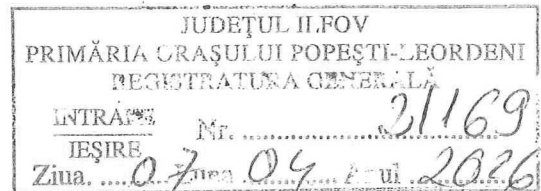 JUDEȚUL ILFOV
PRIMĂRIA ORAȘULUI POPEȘTI-LEORDENI
REGISTRATURA GENERALĂ
INTRARE
IEȘIRE
Nr. 21169
Ziua. 07 Luna 04 Anul 2026